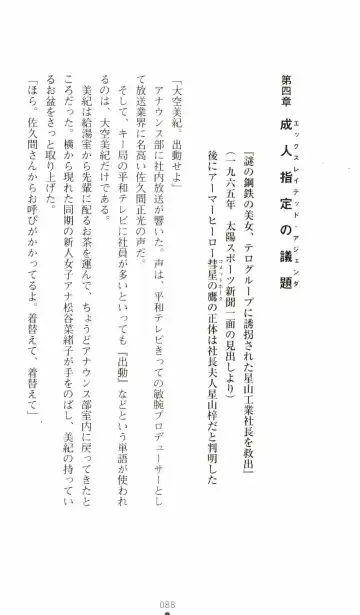 第四章　成人指定の議題
エックスレイテッド・アジェンダ
『謎の鋼鉄の美女、テログループに誘拐された星山工業社長を救出』
(一九六五年　太陽スポーツ新聞一面の見出しより)
後にアーマーヒーロー彗星の鷹の正体は社長夫人星山梓だと判明した
「大空美紀。出動せよ」
アナウンス部に社内放送が響いた。声は、平和テレビきっての敏腕プロデューサーとし
て放送業界に名高い佐久間正光の声だ。
そして、キー局の平和テレビに社員が多いといっても『出動』などという単語が使われ
るのは、大空美紀だけである。
美紀は給湯室から先輩に配るお茶を運んで、ちょうどアナウンス部室内に戻ってきたと
ころだった。横から現れた同期の新人女子アナ松谷菜緒子が手をのばし、美紀の持ってい
るお盆をさっと取り上げた。
「ほら。佐久間さんからお呼びがかかってるよ。着替えて、着替えて」
088